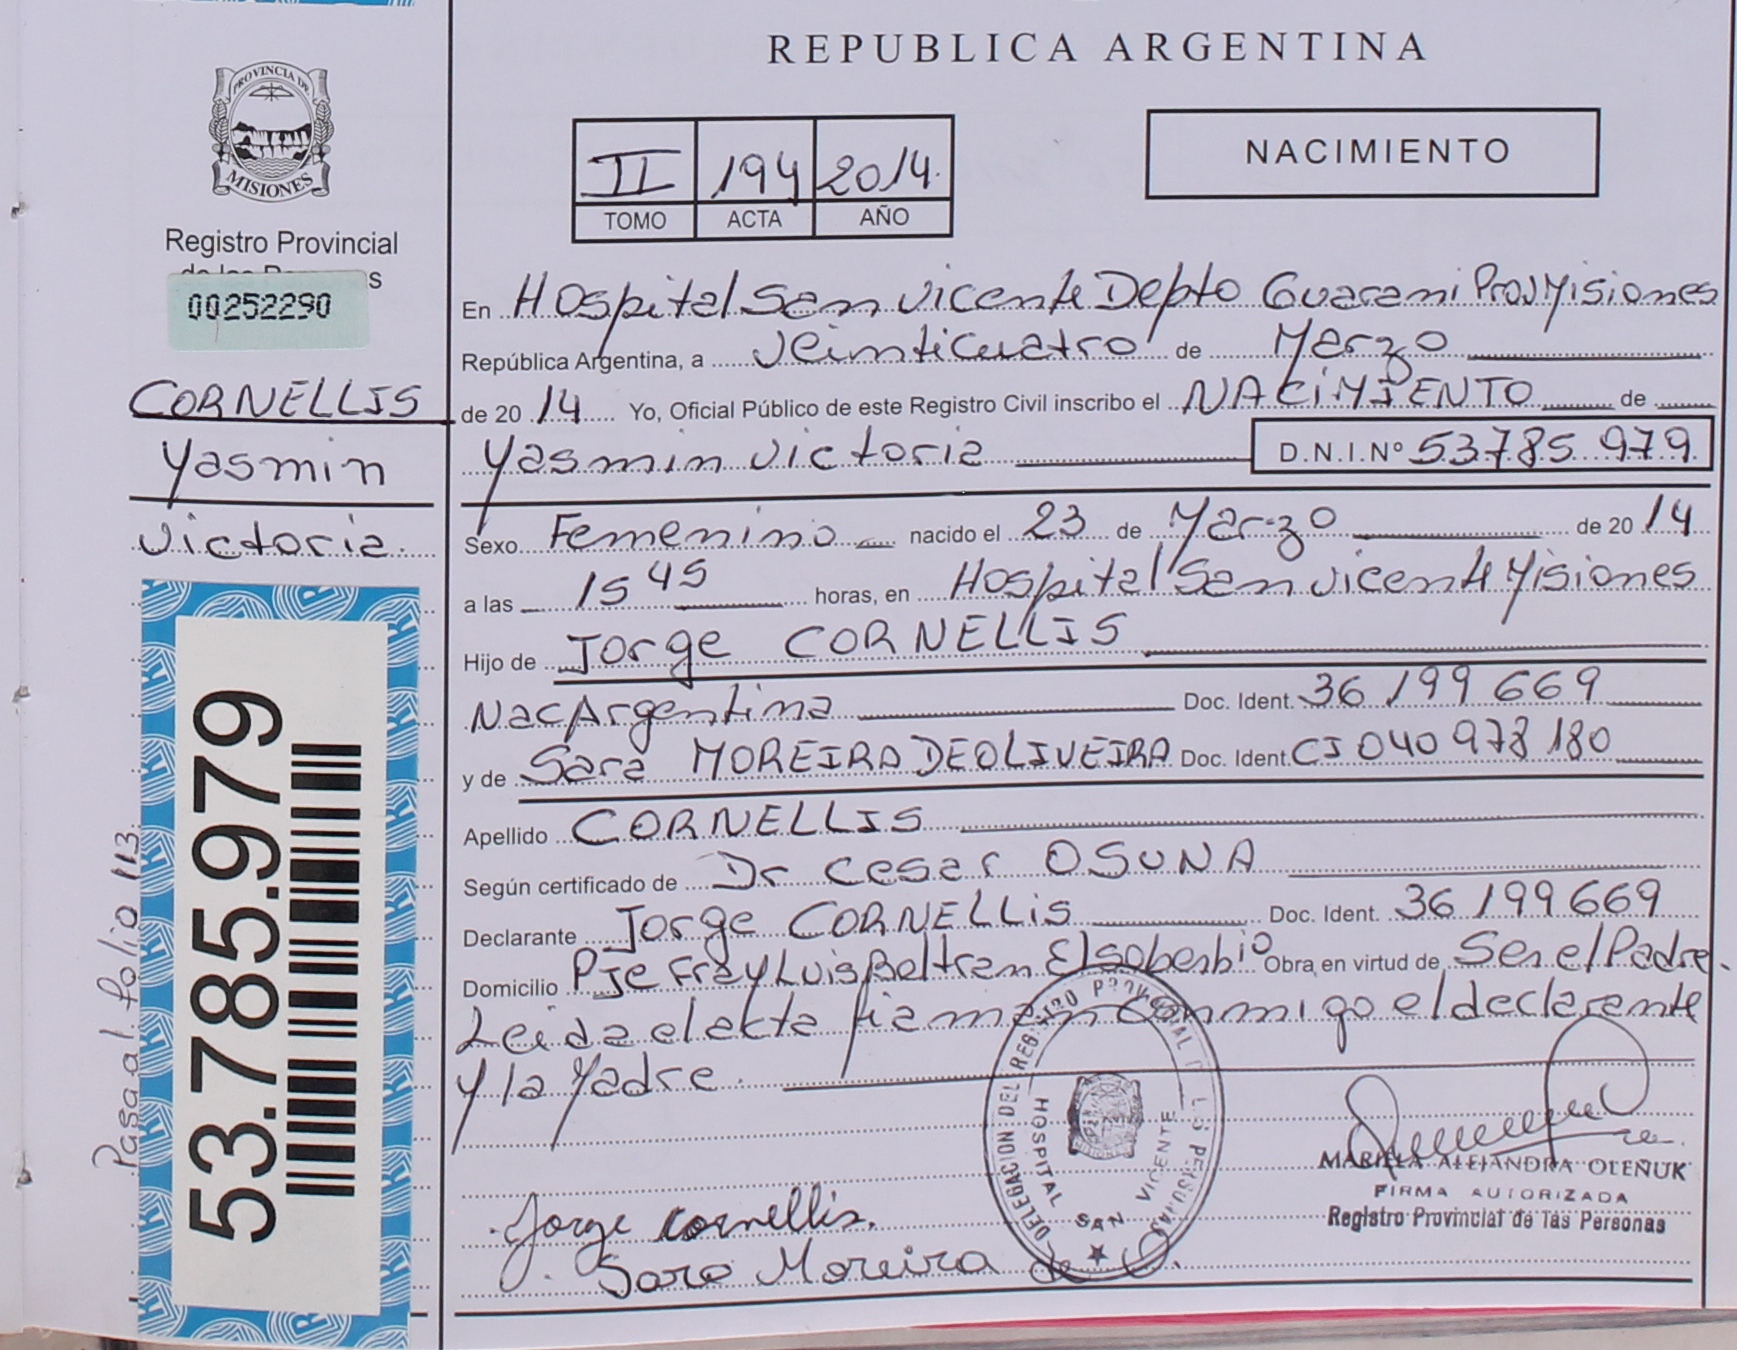 PROVINCIA DE
MISIONES
Registro Provincial
de las Personas
00252290
CORNELLIS
Yasmin
Victoria.
53.785.979
Pasa al folio 113
REPUBLICA ARGENTINA
II 194 2014.
TOMO ACTA AÑO
NACIMIENTO
En Hospital San Vicente Depto Guarani Prov Misiones
República Argentina, a veinticuatro de Marzo
de 2014 Yo, Oficial Público de este Registro Civil inscribo el NACIMIENTO de
Yasmin Victoria D.N.I.Nº 53.785.979
Sexo Femenino nacido el 23 de Marzo de 2014
a las 15 45 horas, en Hospital San Vicente Misiones
Hijo de Jorge CORNELLIS
Nac Argentina Doc. Ident. 36 199 669
y de Sara MOREIRA DEOLIVEIRA Doc. Ident. CI 040 978 180
Apellido CORNELLIS
Según certificado de Dr Cesar OSUNA
Declarante Jorge CORNELLIS Doc. Ident. 36 199 669
Domicilio Pje Fray Luis Beltran El soberbio Obra en virtud de Ser el Padre.
Leida el akta firman conmigo el declarante
y la Madre.
DELEGACION DEL REGISTRO PROVINCIAL DE LAS PERSONAS
HOSPITAL SAN VICENTE
MARIELA ALEJANDRA OLEÑUK
FIRMA AUTORIZADA
Registro Provincial de las Personas
Jorge cornellis.
Sara Moreira de O.